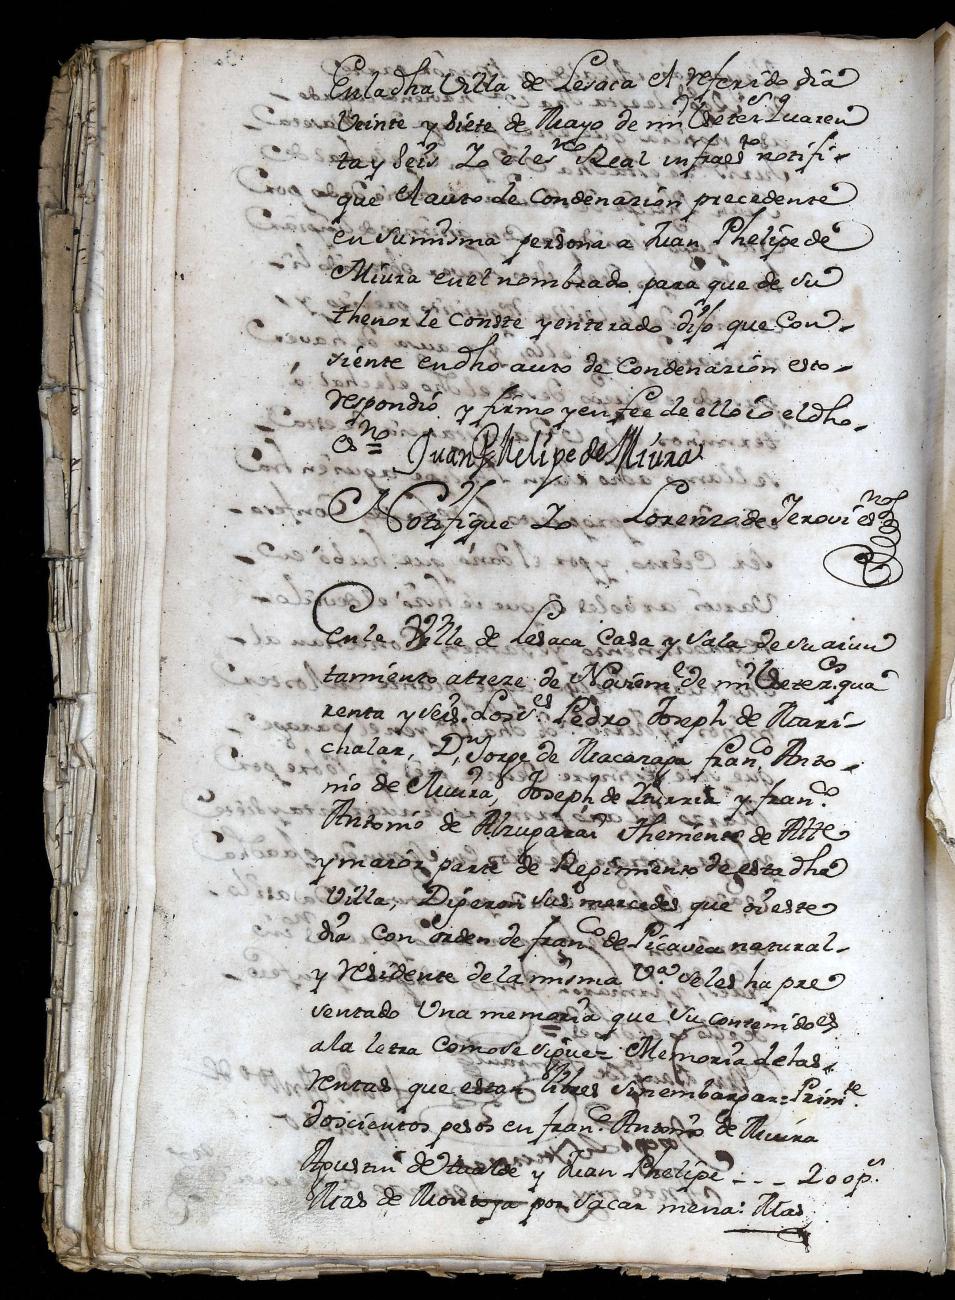 En la dha Villa de Lesaca el referido dia
Veinte y siete de Mayo de mil Setes Quaren
ta y seis Yo el esno Real infraesto notifi-
que el auto de Condenazion precedente
en su misma persona a Juan Phelipe de
Miura en el nombrado para que de su
thenor le conste y enterado dijo que con-
siente en dho auto de Condenazion esto-
respondió y firmo y en fee de ello io el dho-
esno = Juan Phelipe de Miura
Notifique Yo Lorenzo de Jerovi esno
En la Villa de Lesaca Casa y Sala de su aiun
tamiento a treze de Noviembe de mil Setezcos qua
renta y seis. Los Sres Pedro Joseph de Mari-
chalar, Dn Jorge de Macarapa franco Anto-
nio de Miura, Joseph de Yturria y franco
Antonio de Alzugarai theniente de Alte
y maior parte de Regimiento de esta dha
Villa, Digeron sus mercedes que oi este
dia con orden de franco de Picavea natural-
y residente de la misma Va. se les ha pre
sentado Una memoria que su contenido es
a la letra como se sigue = Memoria de las-
rentas que estan libres sin embargar: Primte
Doscientos pesos en franco Antonio de Miura
Agustin de Ytualde y Juan Phelipe - - - 200ps.
Mas de Montoja por sacar menra: Mas